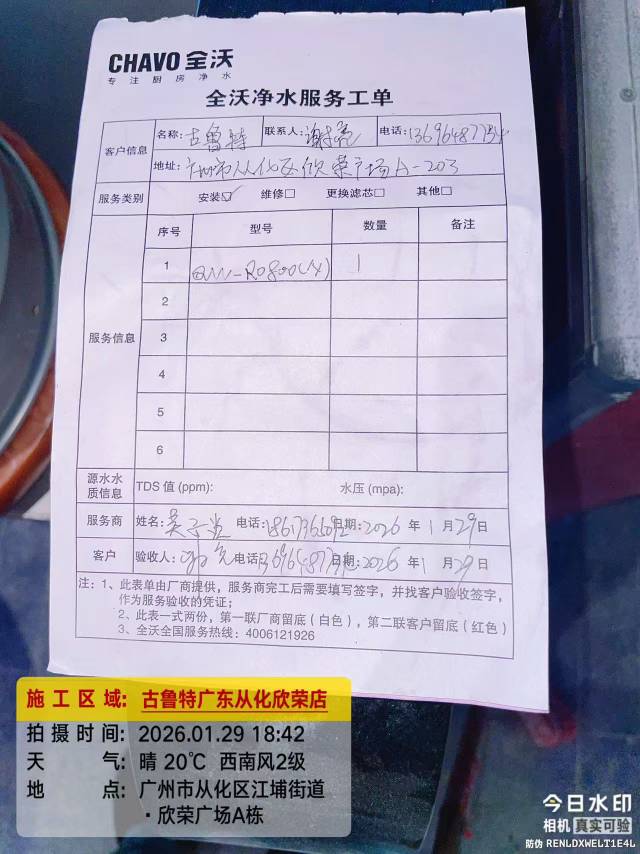 CHAVO 全沃
专注厨房净水
全沃净水服务工单
客户信息 名称：古鲁特 联系人： 电话：
地址：广州市从化区欣荣广场A-203
服务类别 安装☑ 维修□ 更换滤芯□ 其他□
服务信息 序号 型号 数量 备注
1 1
2
3
4
5
6
源水水质信息 TDS 值 (ppm): 水压 (mpa):
服务商 姓名： 电话： 日期：2026 年 1 月 29 日
客户 验收人： 电话： 日期：2026 年 1 月 29 日
注：1、此表单由厂商提供，服务商完工后需要填写签字，并找客户验收签字，
作为服务验收的凭证；
2、此表一式两份，第一联厂商留底（白色），第二联客户留底（红色）
3、全沃全国服务热线：4006121926
施工区域：古鲁特广东从化欣荣店
拍摄时间：2026.01.29 18:42
天 气：晴 20℃ 西南风2级
地 点：广州市从化区江埔街道
·欣荣广场A栋
今日水印
相机 真实可验
防伪 RENLDXWELT1E4L